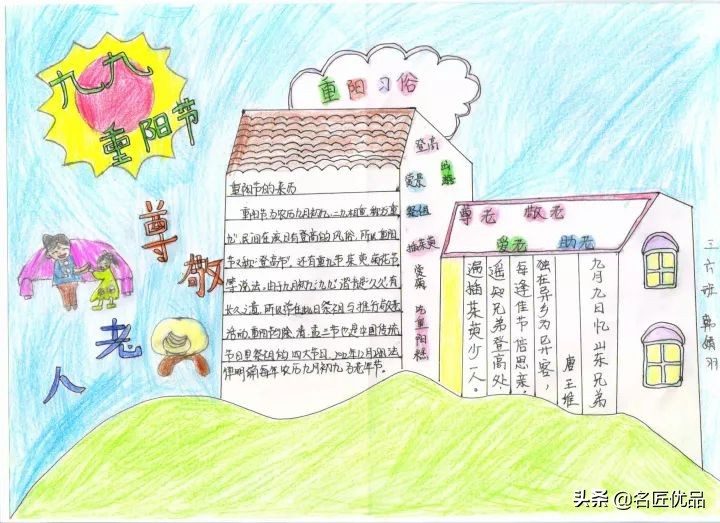 九九
重阳节
尊敬
老人
重阳习俗
登高
赏景 出游
祭祖
插茱萸
赏菊
吃重阳糕
重阳节的来历
重阳节为农历九月初九,二九相重,称为"重
九",民间在该日有登高的风俗,所以重阳
节又称"登高节"。还有重九节、茱萸、菊花节
等说法。由于九月初九"九九"谐音是"久久"有
长久之意,所以常在此日祭祖与推行敬老
活动。重阳与除、清、盂三节也是中国传统
节日里祭祖的四大节日。2012年12月28日法
律明确每年农历九月初九为老年节。
尊老 敬老
爱老 助老
九月九日忆山东兄弟
唐 王维
独在异乡为异客,
每逢佳节倍思亲。
遥知兄弟登高处
遍插茱萸少一人。
三六班 韩婧羽
头条 @名匠优品